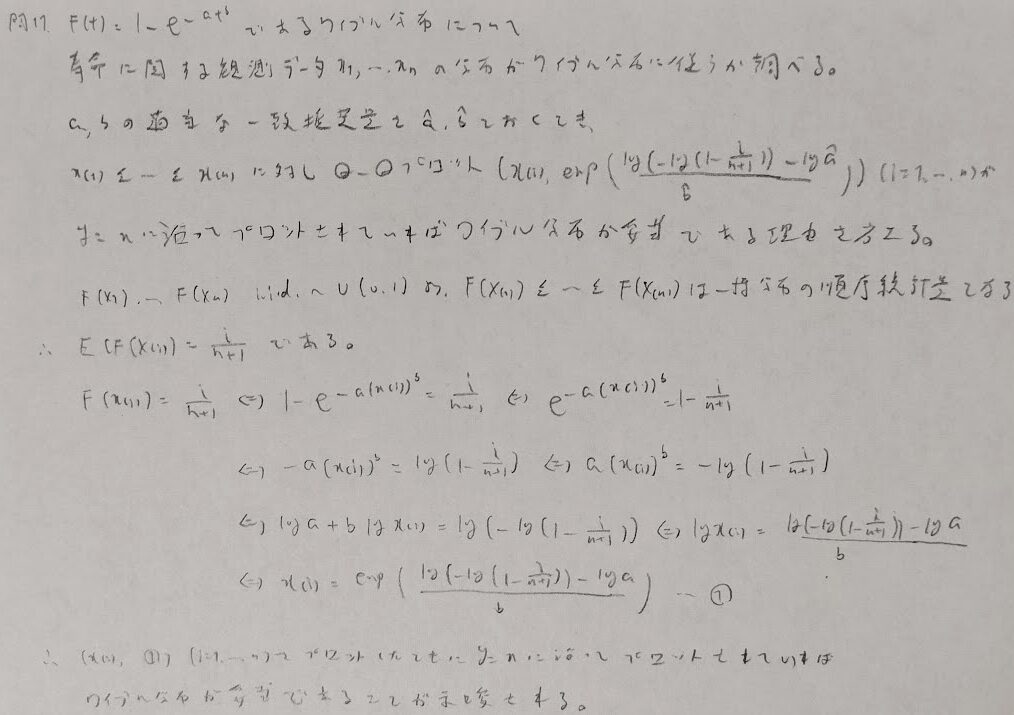 問17. F(t) = 1 - e^{-at^b} であるワイブル分布について
寿命に関する観測データ x1, …, xn の分布がワイブル分布に従うか調べる。
a, b の適当な一致推定量を â, b̂ とおくとき、
x(1) ≤ … ≤ x(n) に対し Q-Qプロット (x(i), exp( (log(-log(1 - i/(n+1))) - log â) / b̂ )) (i=1, …, n) が
y = x に沿ってプロットされていればワイブル分布が妥当である理由を考える。
F(X1), … F(Xn) i.i.d. ~ U(0,1) より, F(X(1)) ≤ … ≤ F(X(n)) は一様分布の順序統計量となる
∴ E(F(X(i)) = i/(n+1) である。
F(x(i)) = i/(n+1) ⇔ 1 - e^{-a(x(i))^b} = i/(n+1) ⇔ e^{-a(x(i))^b} = 1 - i/(n+1)
⇔ -a(x(i))^b = log(1 - i/(n+1)) ⇔ a(x(i))^b = -log(1 - i/(n+1))
⇔ log a + b log x(i) = log(-log(1 - i/(n+1))) ⇔ log x(i) = (log(-log(1 - i/(n+1))) - log a) / b
⇔ x(i) = exp( (log(-log(1 - i/(n+1))) - log a) / b ) … ①
∴ (x(i), ①) (i=1, …, n) でプロットしたときに y = x に沿ってプロットされていれば
ワイブル分布が妥当であることが示唆される。